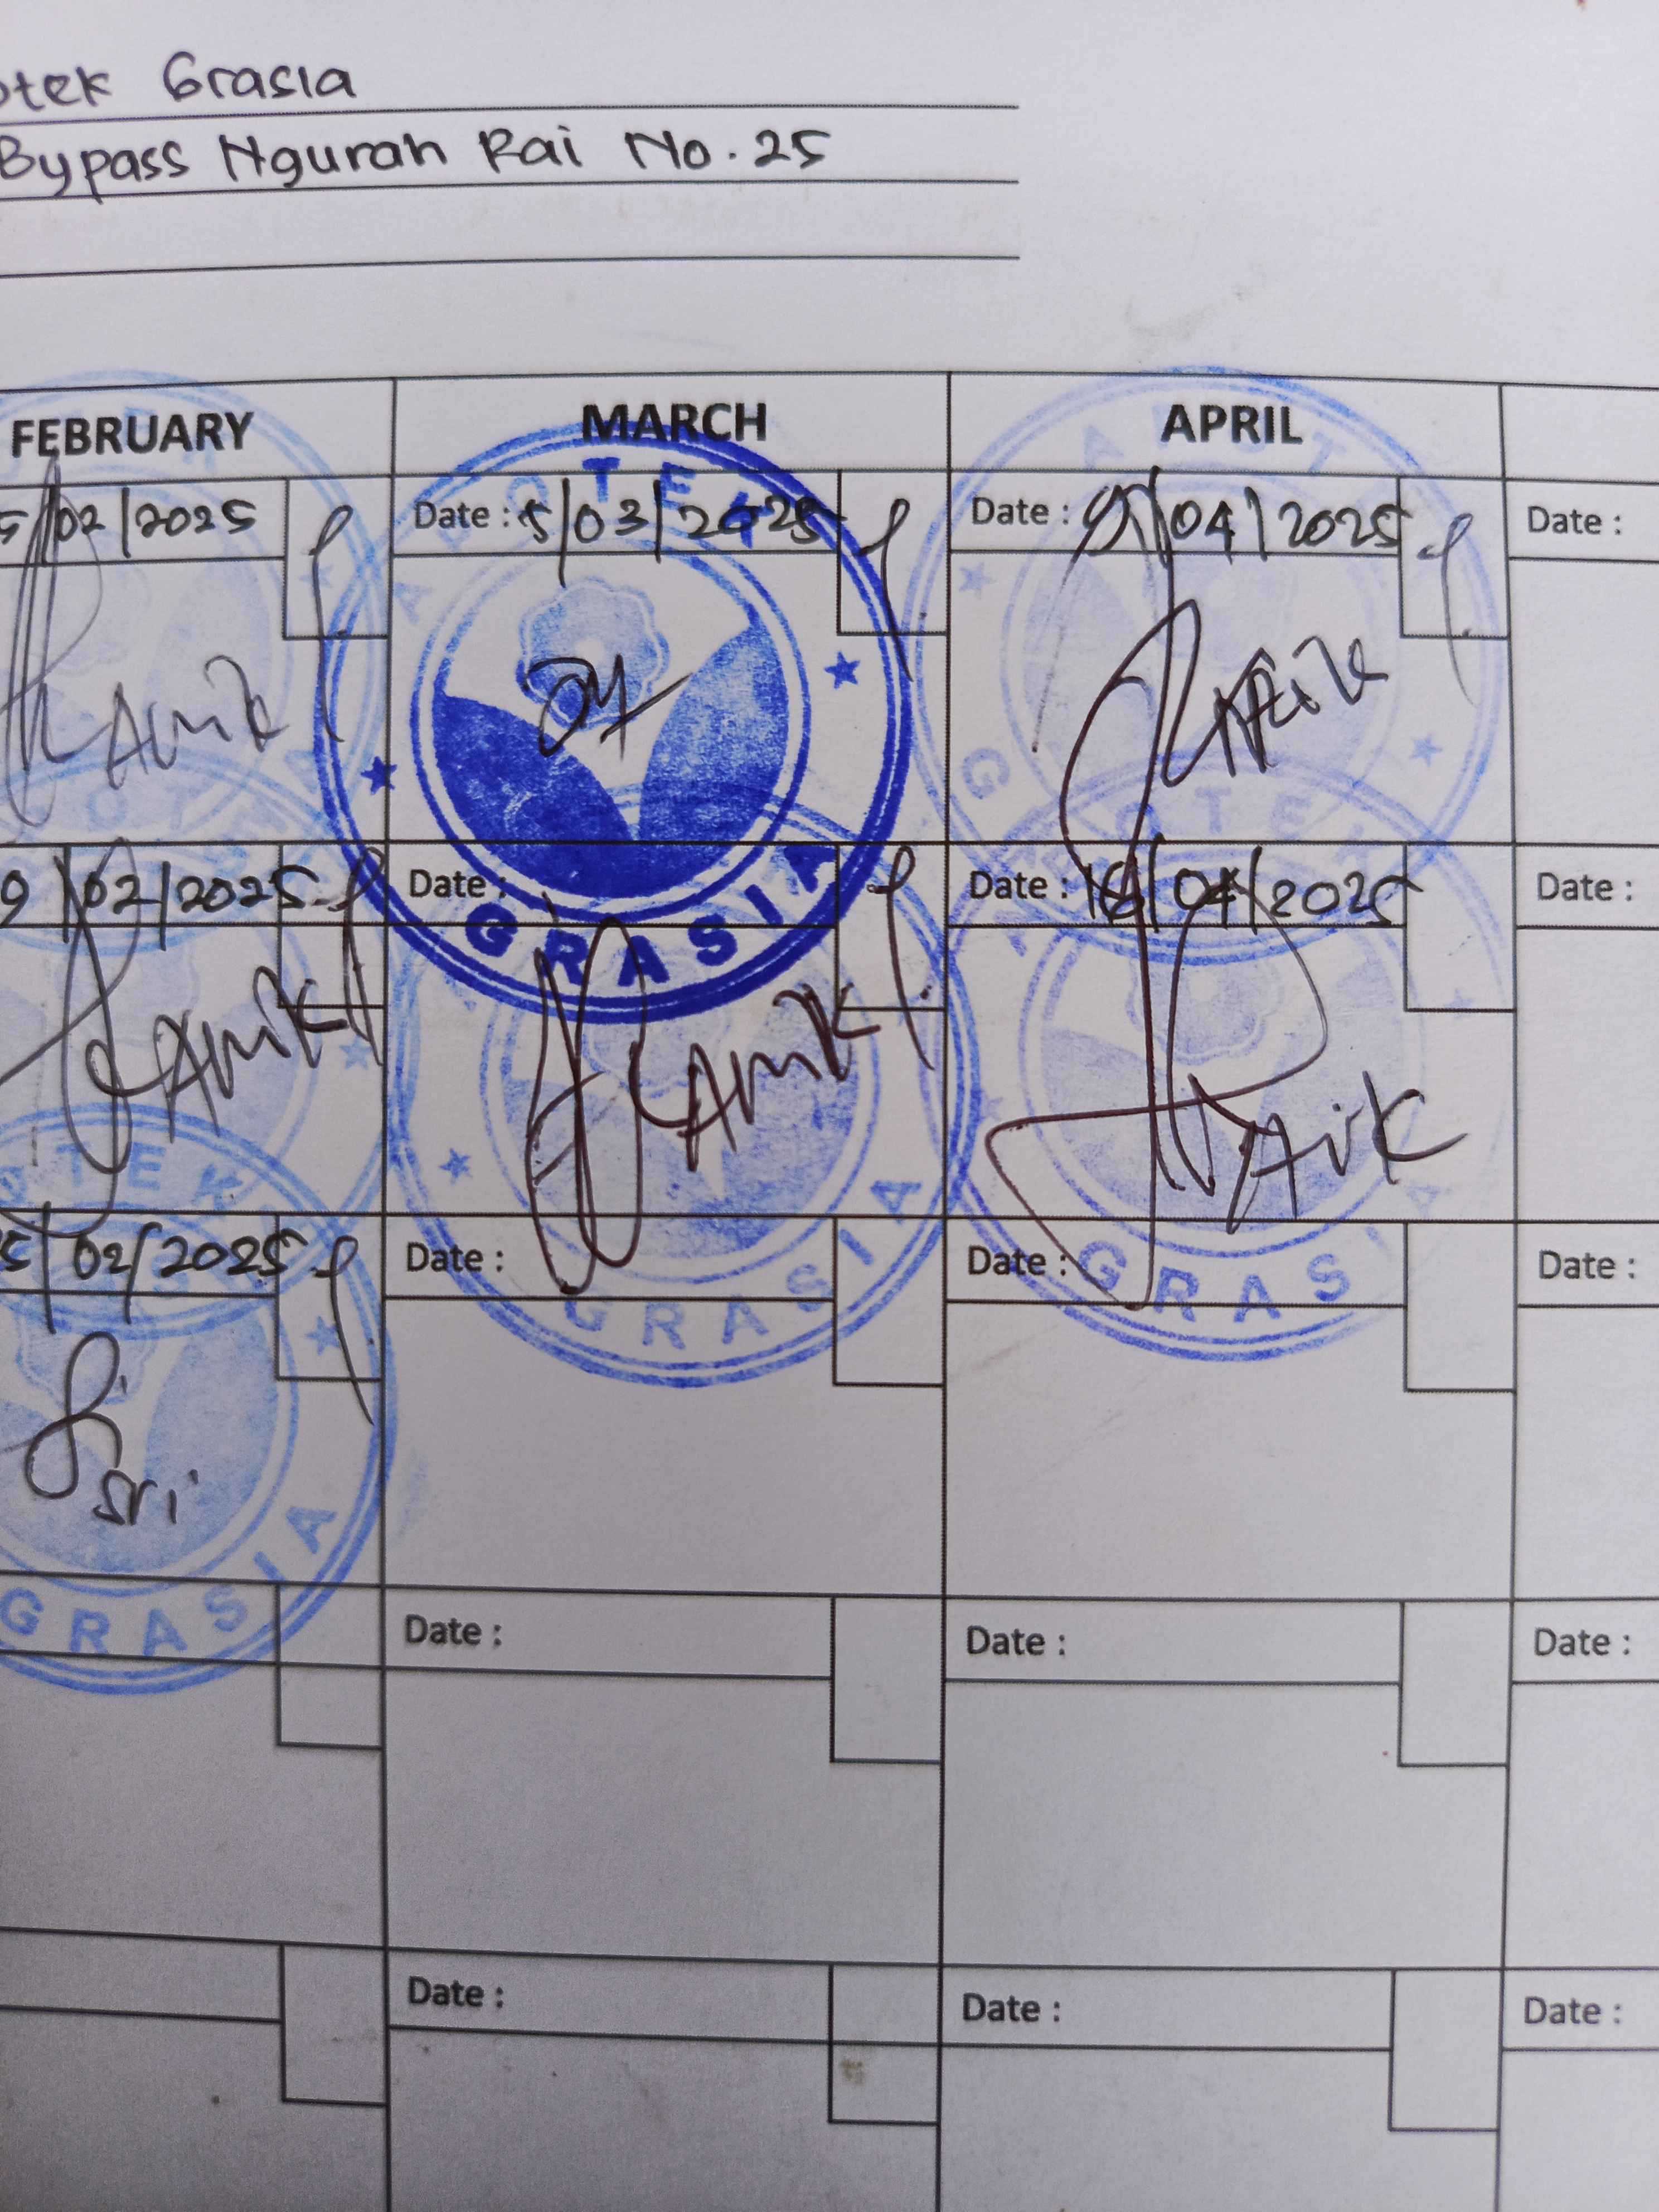 otek Grasia
Bypass Ngurah Rai No. 25
FEBRUARY MARCH APRIL
5/02/2025 Date : 5/03/2025 Date : 9/04/2025 Date :
APOTEK
Amik
GRASIA
9/02/2025 Date : Date : 16/04/2025 Date :
Amik Amik
GRASIA GRASIA
5/02/2025 Date : Date : Date :
sri
GRASIA
Date : Date : Date :
Date : Date : Date :